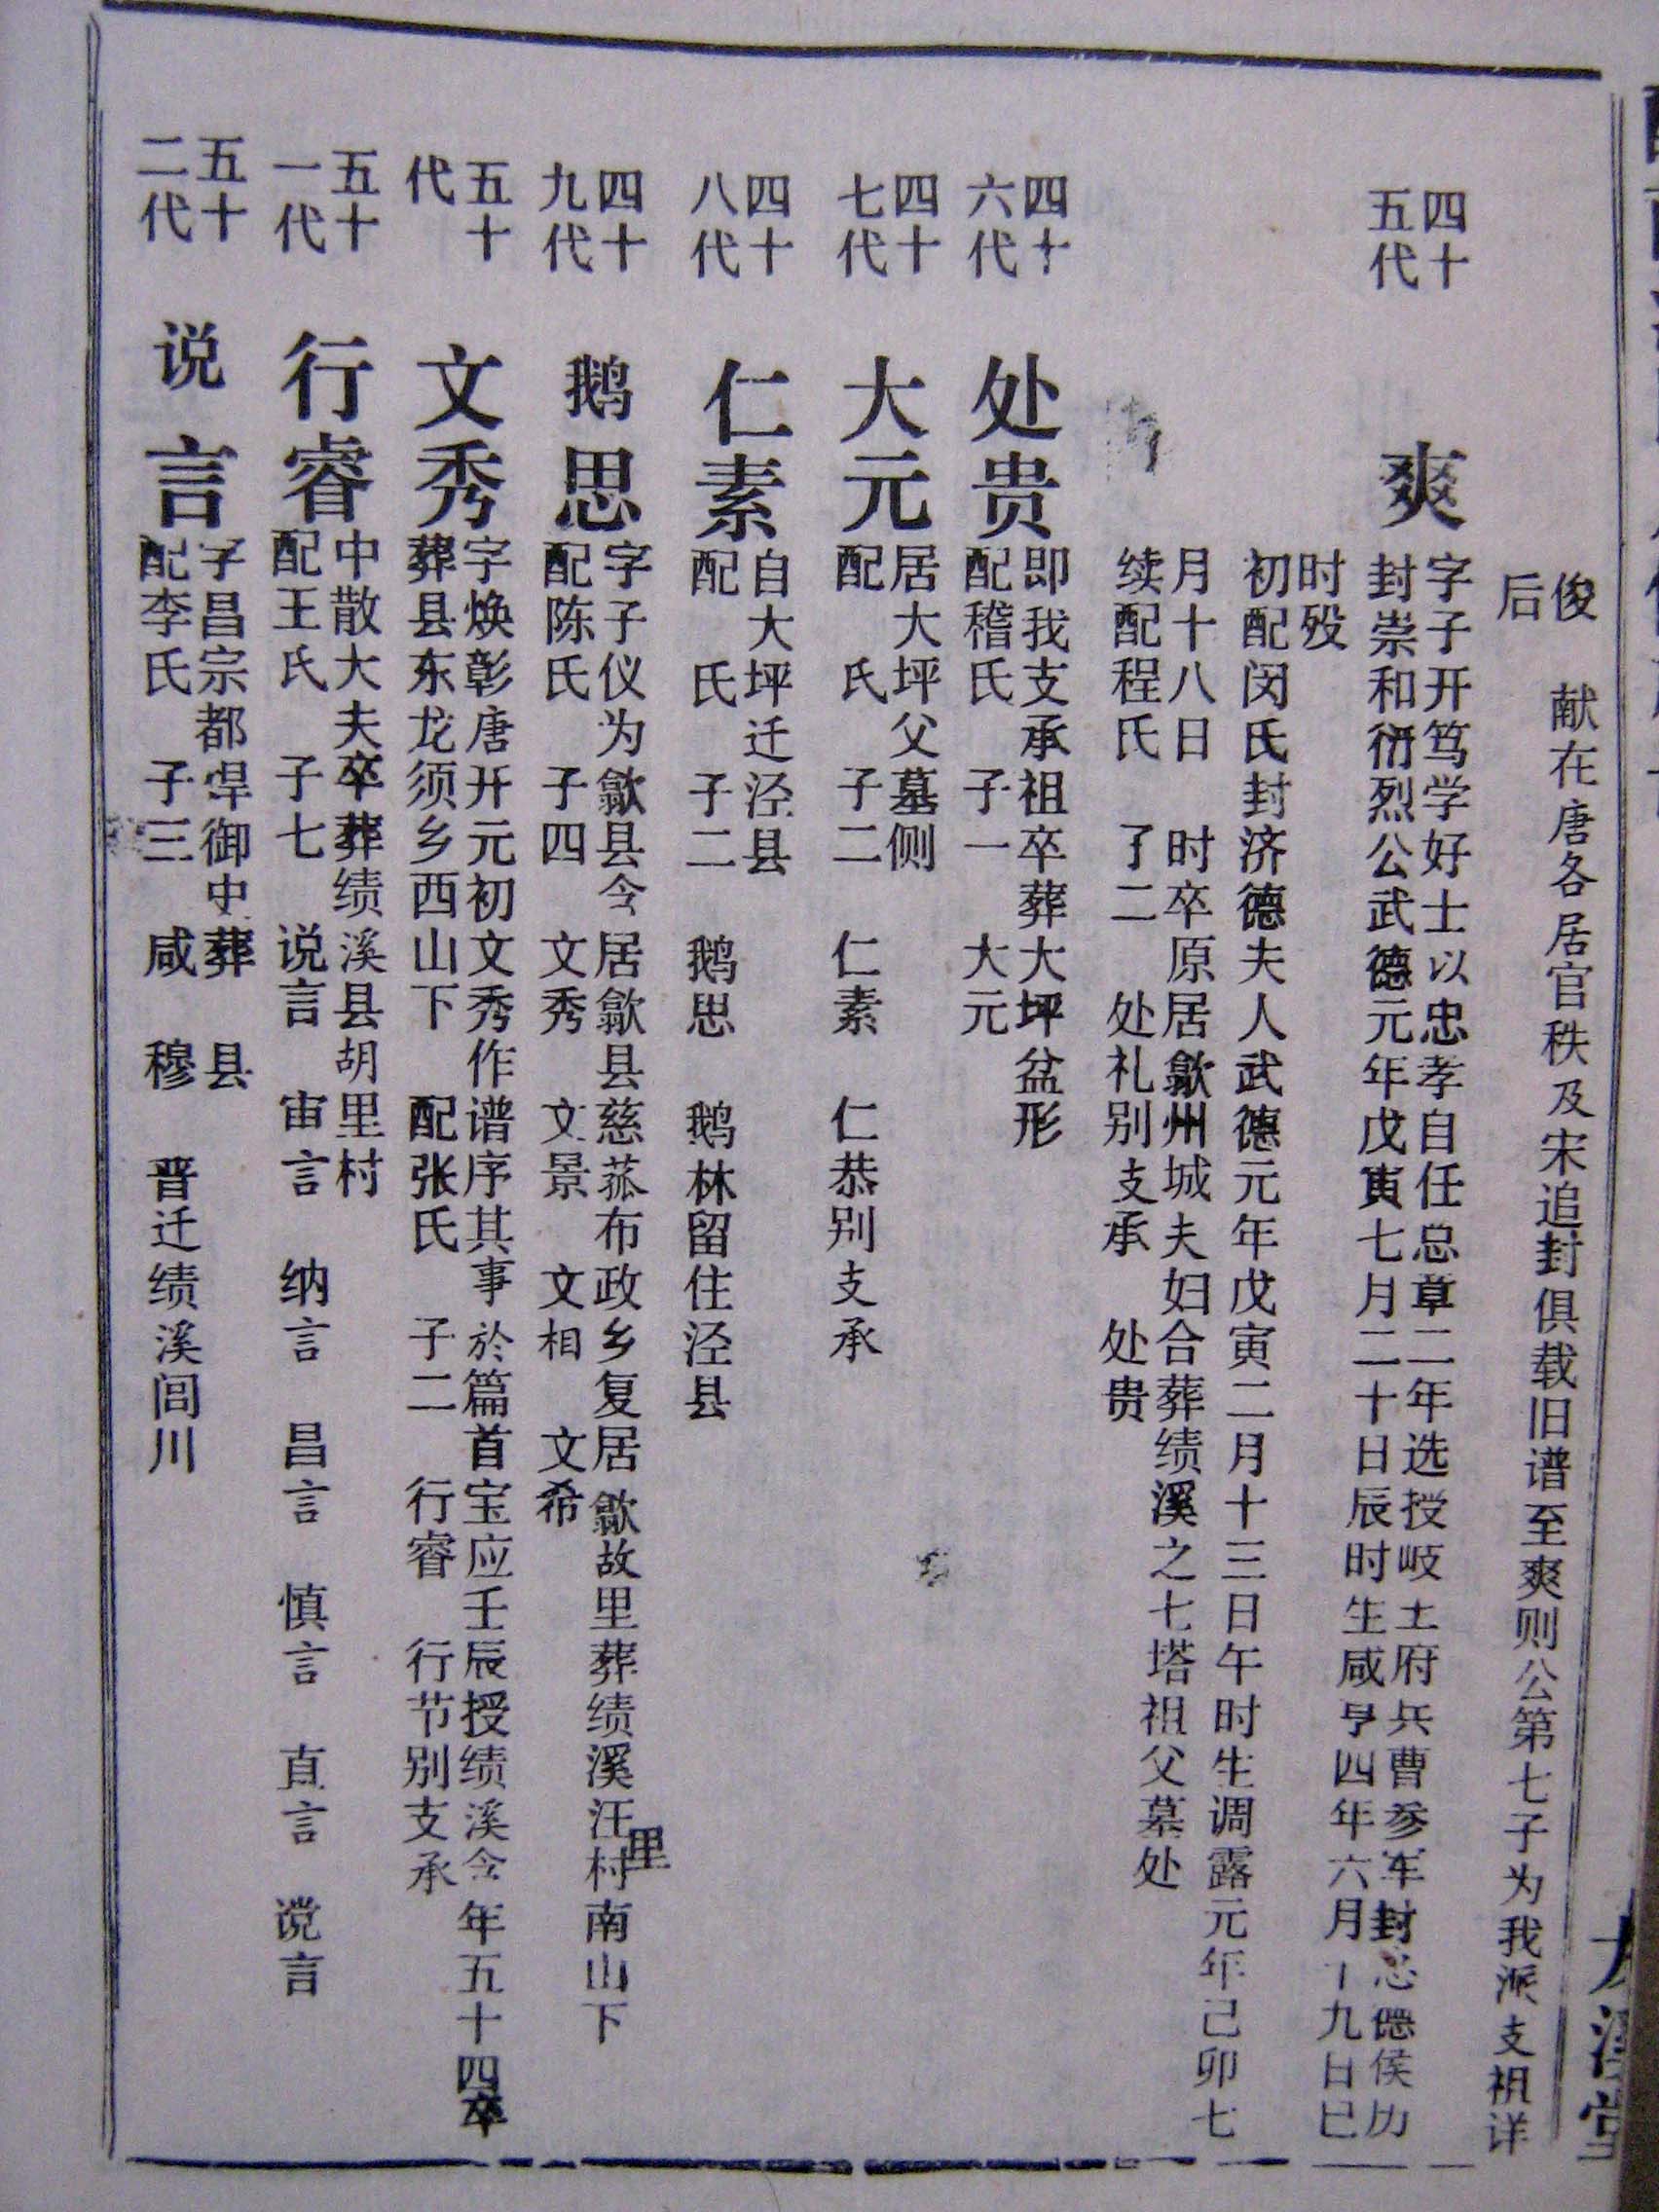 俊献在唐各居官秩及宋追封俱载旧谱至爽则公第七子为我派支祖详
后
四十
五代
爽
字子开笃学好士以忠孝自任总章二年选授岐王府兵曹参军封忠德侯历
封崇和衍烈公武德元年戊寅七月二十日辰时生咸亨四年六月十九日巳
时殁
初配闵氏封济德夫人武德元年戊寅二月十三日午时生调露元年己卯七
月十八日 时卒原居歙州城夫妇合葬绩溪之七塔祖父墓处
续配程氏 子二 处礼别支承 处贵
四十
六代
处贵
即我支承祖卒葬大坪盆形
配稽氏 子一 大元
四十
七代
大元
居大坪父墓侧
配 氏 子二 仁素 仁恭别支承
四十
八代
仁素
自大坪迁泾县
配 氏 子二 鹅思 鹅林留住泾县
四十
九代
鹅思
字子仪为歙县令居歙县慈菰布政乡复居歙故里葬绩溪汪村里南山下
配陈氏 子四 文秀 文景 文相 文希
五十
代
文秀
字焕彰唐开元初文秀作谱序其事於篇首宝应壬辰授绩溪令年五十四卒
葬县东龙须乡西山下 配张氏 子二 行睿 行节别支承
五十
一代
行睿
中散大夫卒葬绩溪县胡里村
配王氏 子七 说言 宙言 纳言 昌言 慎言 直言 谠言
五十
二代
说言
字昌宗都焊御史葬 县
配李氏 子三 咸 穆 晋迁绩溪闾川